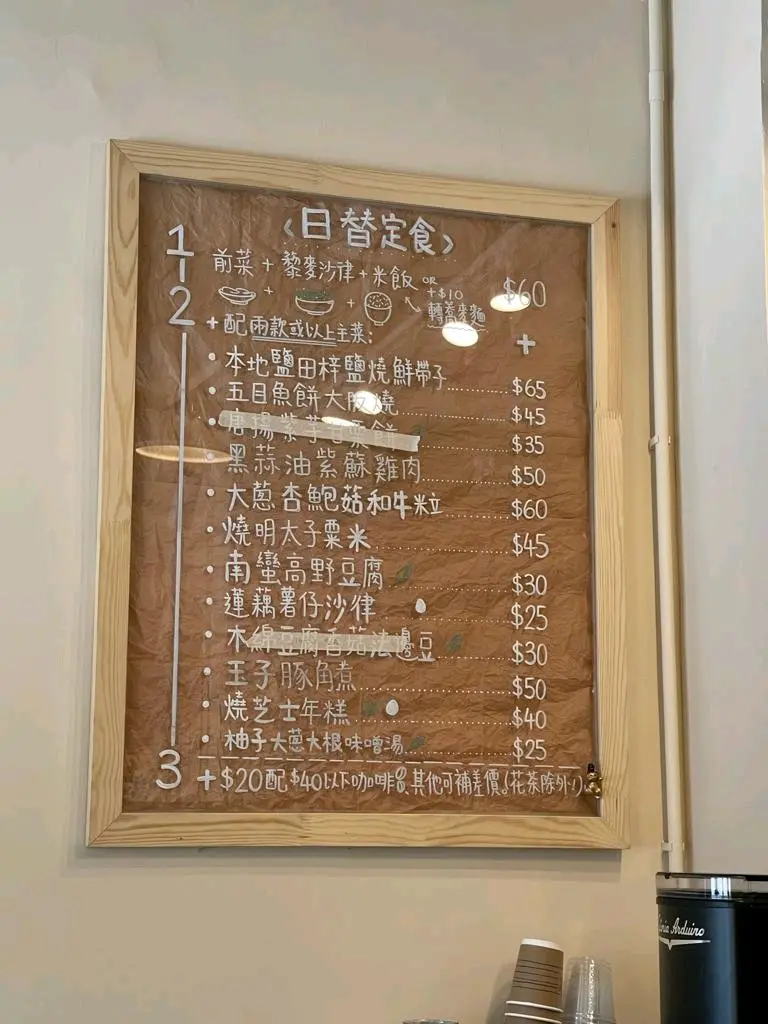 1
〈日替定食〉
前菜 + 藜麥沙律 + 米飯 OR +$10 轉蕎麥麵 $60
2
+ 配兩款或以上主菜: +
• 本地鹽田梓鹽燒鮮帶子 $65
• 五目魚餅大阪燒 $45
• 唐揚紫芋百栗餅 $35
• 黑蒜油紫蘇雞肉 $50
• 大蔥杏鮑菇和牛粒 $60
• 燒明太子粟米 $45
• 南蠻高野豆腐 $30
• 蓮藕薯仔沙律 $25
• 木綿豆腐香菇法邊豆 $30
• 玉子豚角煮 $50
• 燒芝士年糕 $40
• 柚子大蔥大根味噌湯 $25
3
+ $20配$40以下咖啡,其他可補差價。(花茶除外!)
Arduino